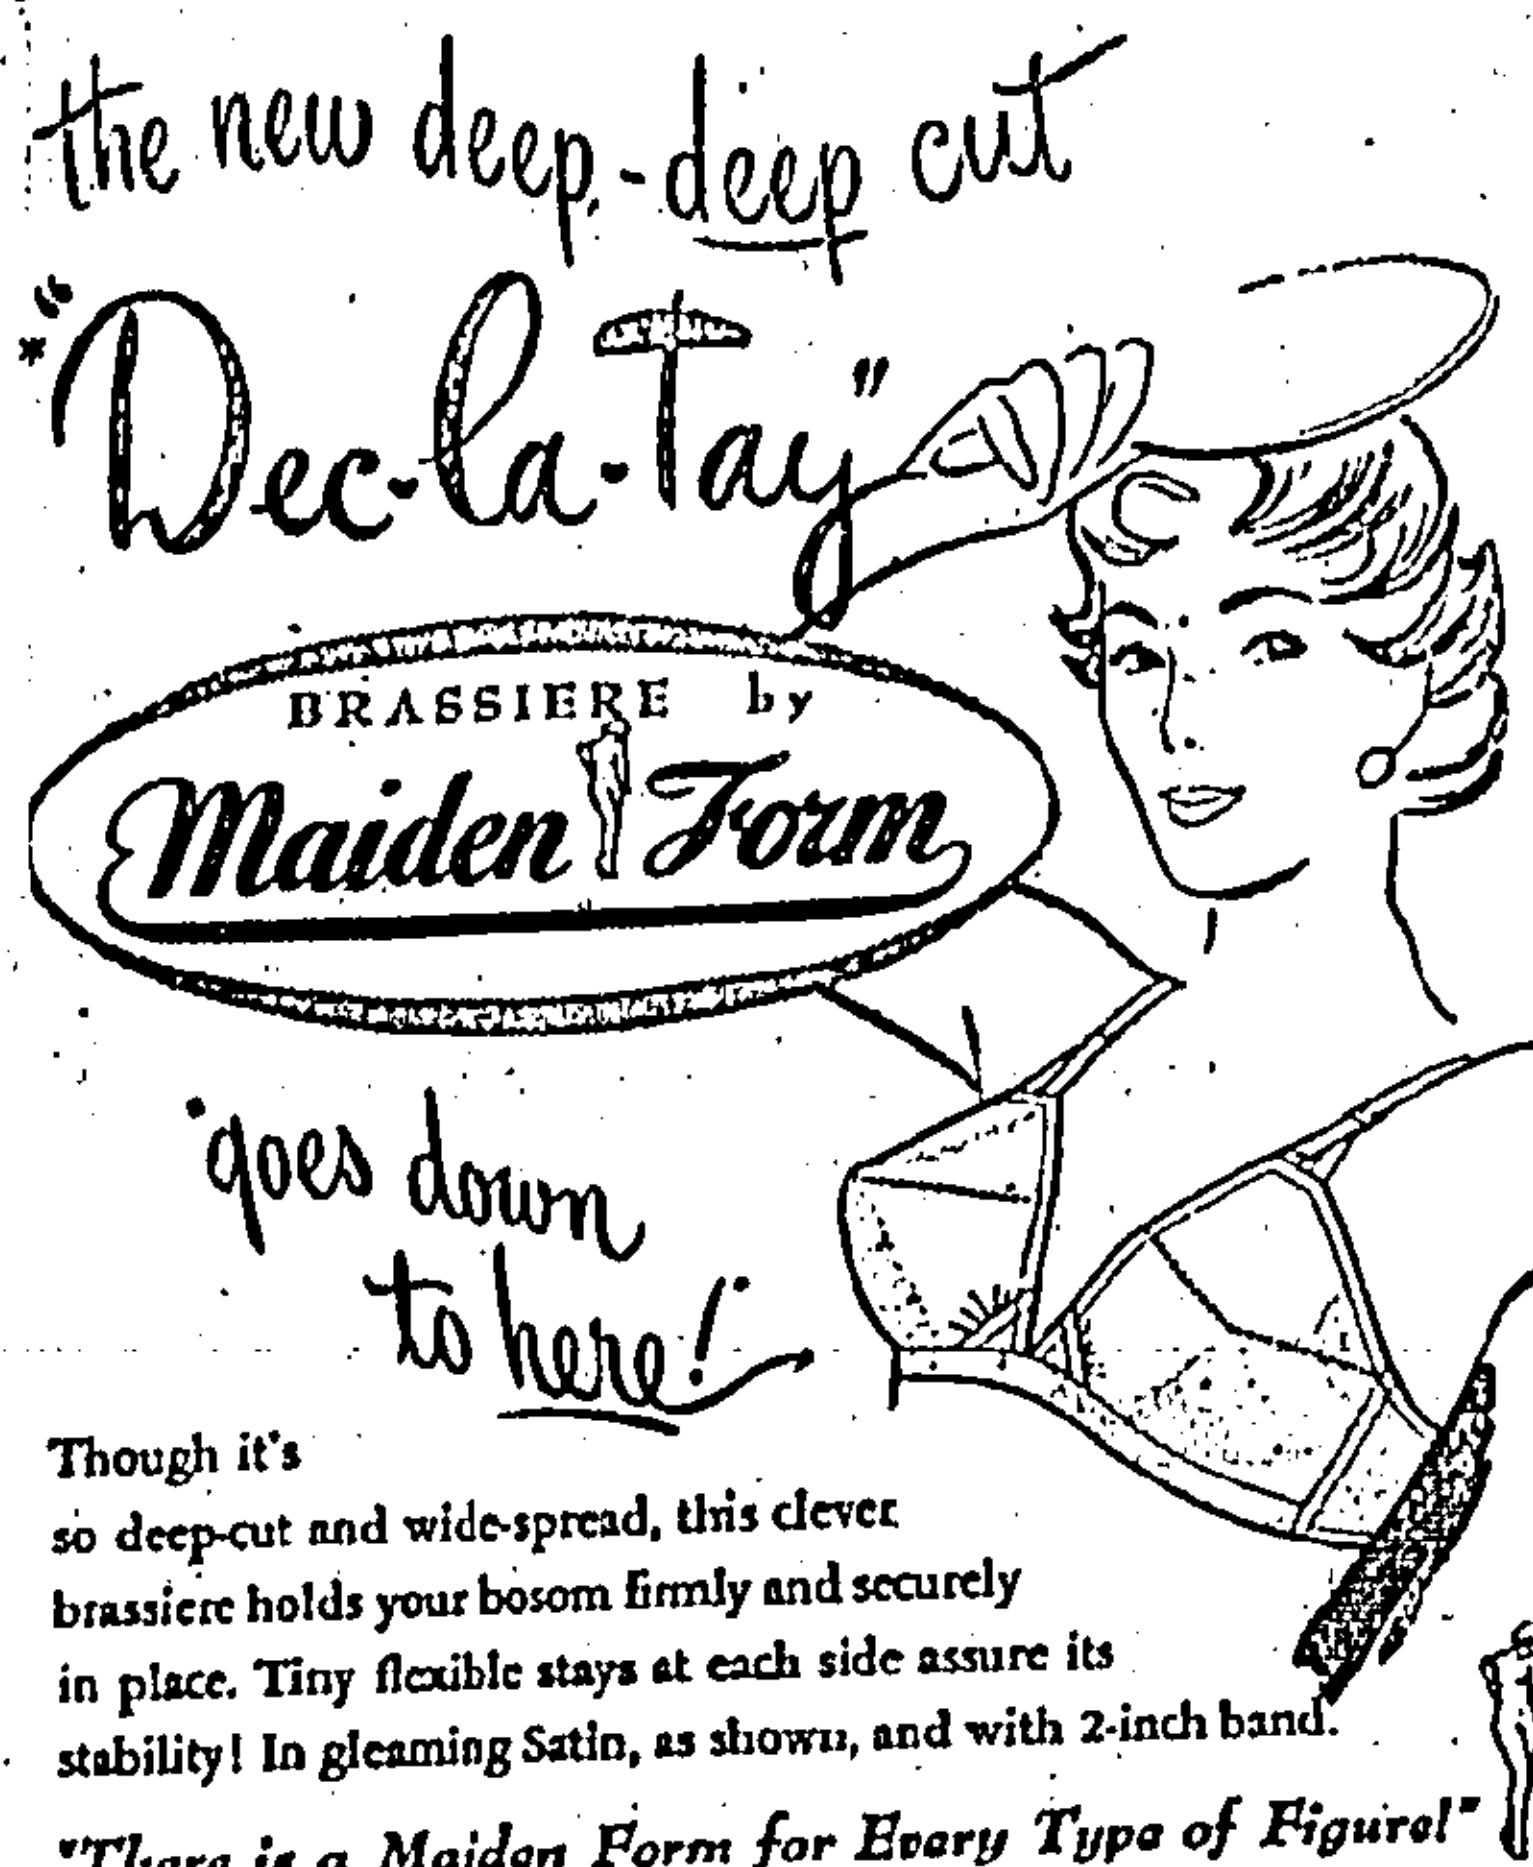 the new deep-deep cut
*"Dec-la-Tay"
BRASSIERE by
Maiden Form
goes down
to here!
Though it's
so deep-cut and wide-spread, this clever
brassiere holds your bosom firmly and securely
in place. Tiny flexible stays at each side assure its
stability! In gleaming Satin, as shown, and with 2-inch band.
"There is a Maiden Form for Every Type of Figure!"